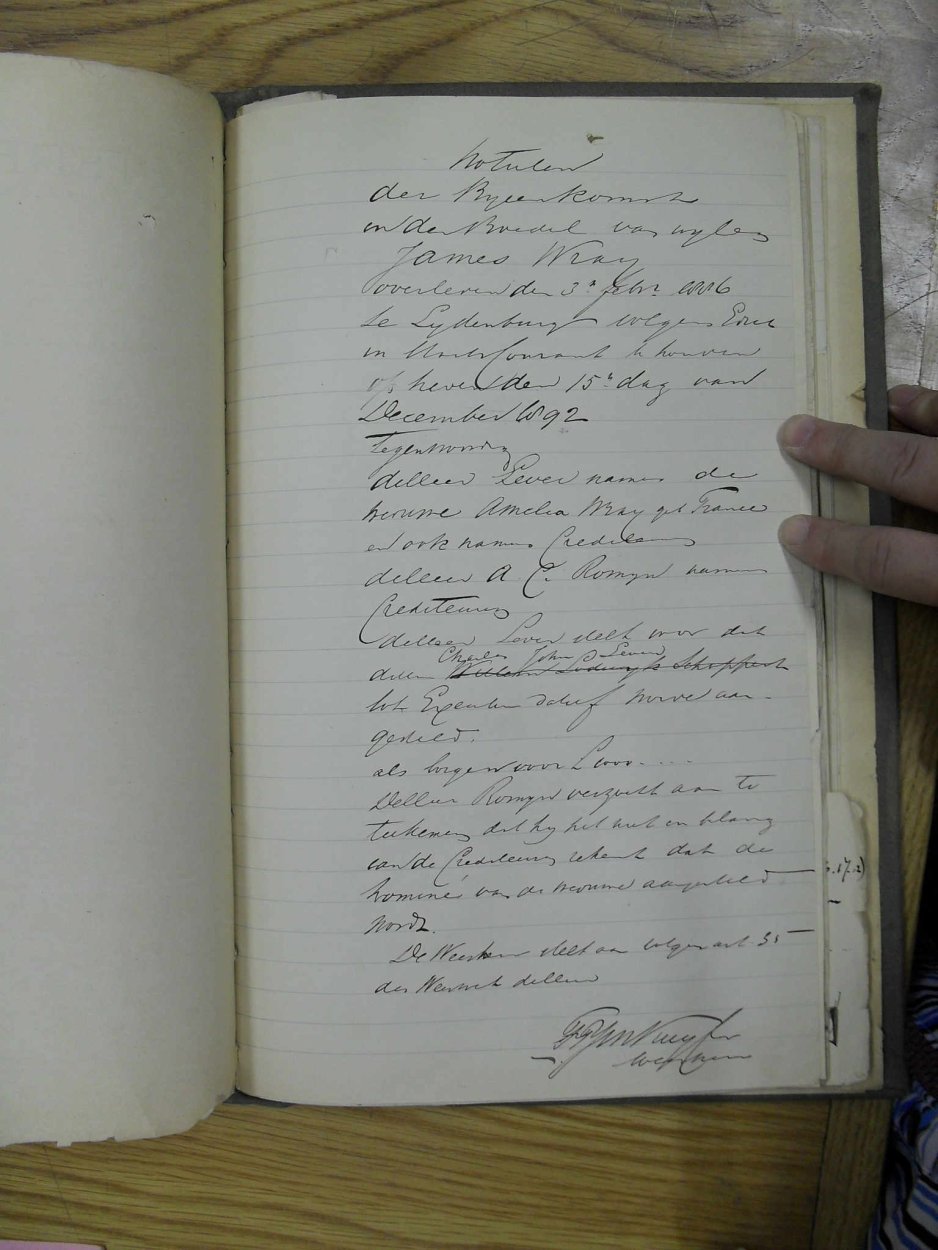 Notulen
der Byeenkomst
in den Boedel van wylen
James Wray
overleden den 3n Febr. 1886
te Lydenburg volgens Edict
in Staats Courant te houden
op heden den 15e dag van
December 1892
Tegenwoordig
de Heer Lever namens de
weduwe Amelia Wray geb France
en ook namens Crediteuren
de Heer A. C. Romyn namens
Crediteuren
de Heer Lever stelt voor dat
de Heer Charles John Lever
Willem Lodewyk Schoppert
tot Executeur Datief worde aan-
gesteld.
als borgen voor £
De Heer Romyn verzoekt aan te
teekenen dat hy het niet in belang
van de Crediteuren rekent dat de
nominé van de weduwe aangesteld
wordt.
De Weesheer stelt aan volgens art 35
der Weeswet de Heer
Weesheer
17.2)